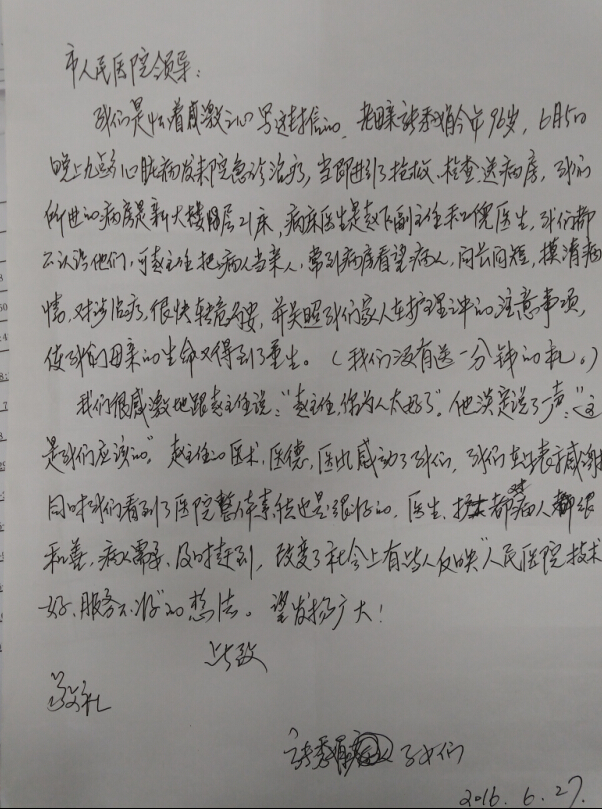 市人民医院领导:
我们是怀着感激之心写这封信的。老母亲今年96岁,6月5日
晚上九点多心脏病发来院急诊治疗,当即进行了抢救、检查送病房,我们
所进的病房是新大楼层21床,病床医生是赵飞副主任和倪医生,我们都
不认识他们,可赵主任把病人当亲人,常到病房看望病人,问长问短,摸清病
情,对症治疗,很快转危为安,并关照我们家人在护理之中的注意事项,
使我们母亲的生命又得到了重生。(我们没有送一分钱的礼。)
我们很感激地跟赵主任说:“赵主任,你为人太好了”。他淡定说了一声:“这
是我们应该的”赵主任的医术、医德、医风感动了我们,我们在此表示感谢
同时我们看到了医院整体素质也是很好的,医生、护士都对病人都很
和善,病人需求、及时赶到,改变了社会上有些人反映“人民医院技术
好、服务不好”的想法。望发扬广大!
此致
敬礼
子女们
2016.6.27.